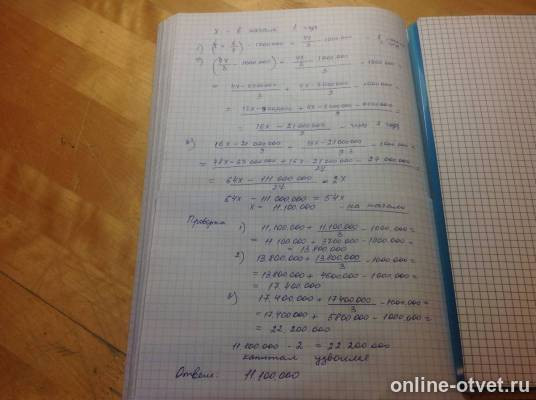 x - в начале 1 года
1) - 1000.000 = 4x/3 - 1000.000 -
2) (4x/3 - 1000.000) + - 1000.000 =
= 4x - 3000000/3 + 4x - 3000.000 - 1000.000 =
=
= 16x - 21000000/9 - через 2 года
3) 16x - 21 000 000/9 + 16x - 21000.000/9·3 - 1000.000 =
= + 16x - 21 000 000 - 27 000.000/27
= 64x - 111 000 000/27 = 2x
64x - 111 000.000 = 54x
x = 11.100.000 - на начало
Проверка
1) 11.100.000 + 11.100.000/3 - 1000.000 =
= 11 100.000 + 3700 000 - 1000.000 =
= 13.800 000
2) 13.800.000 + 13.800.000/3 - 1000.000 =
= 13.800.000 + 4600 000 - 1000.000 =
= 17.400.000
3) 17.400.000 + 17400.000/3 - 1000.000 =
= 17.400.000 + 5800.000 - 1000.000 =
= 22.200.000
11.100.000 - 2 = 22 200.000
капитал удвоился
Ответ: 11.100.000
online-otvet.ru